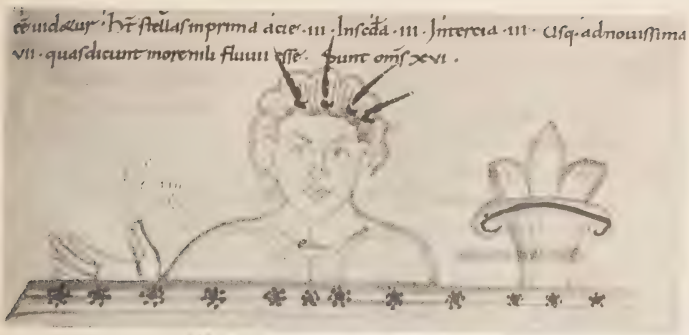 eē uidetur · Hƚ stellas in prima acie · iii · In scđa · iii · In tercia · iii · Usq · ad nouissima
vii · quas dicunt more nili fluuii esse · Sunt oms̄ xvi ·